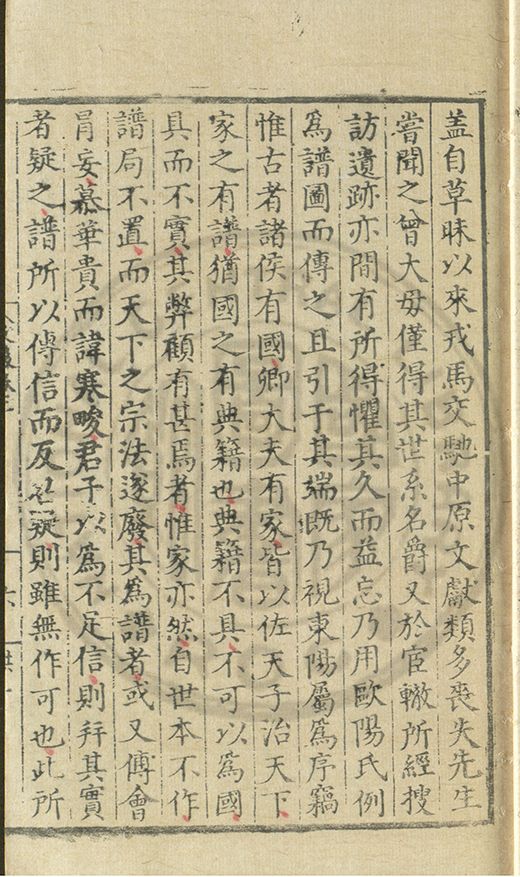 盖自草昧以來戎馬交馳中原文獻類多喪失先生
嘗聞之曾大母僅得其世系名爵又於宦轍所經搜
訪遺跡亦間有所得懼其久而益忘乃用歐陽氏例
爲譜圖而傳之且引于其端既乃視東陽屬爲序竊
惟古者諸侯有國卿大夫有家皆以佐天子治天下
家之有譜猶國之有典籍也典籍不具不可以爲國
具而不實其弊顧有甚焉者惟家亦然自世本不作
譜局不置而天下之宗法遂廢其爲譜者或又傅會
冒妄慕華貴而諱寒畯君子以爲不足信則并其實
者疑之譜所以傳信而反以疑則雖無作可也此所